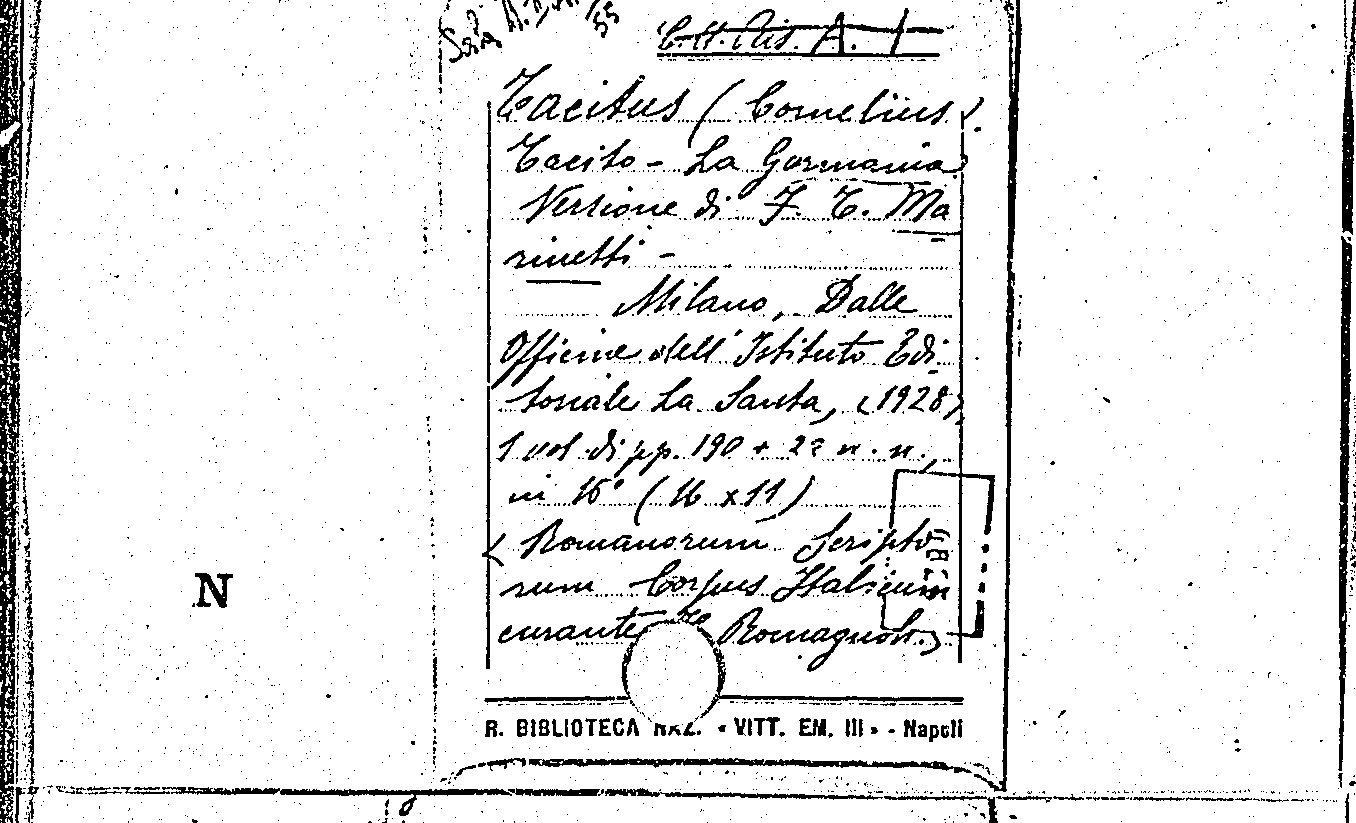 Sala
Tacitus (Cornelius).
Tacito - La Germania
Versione di F. T. Ma
rinetti -
Milano, Dalle
Officine dell' Istituto Edi-
toriale La Santa, (1928)
1 vol. di pp. 190 + 2 n. n.,
in 16° (16 x 11)
( Romanorum Scripto
rum Corpus Italicum
curante Romagnoli)
N
R. BIBLIOTECA NAZ. «VITT. EM. III» - Napoli